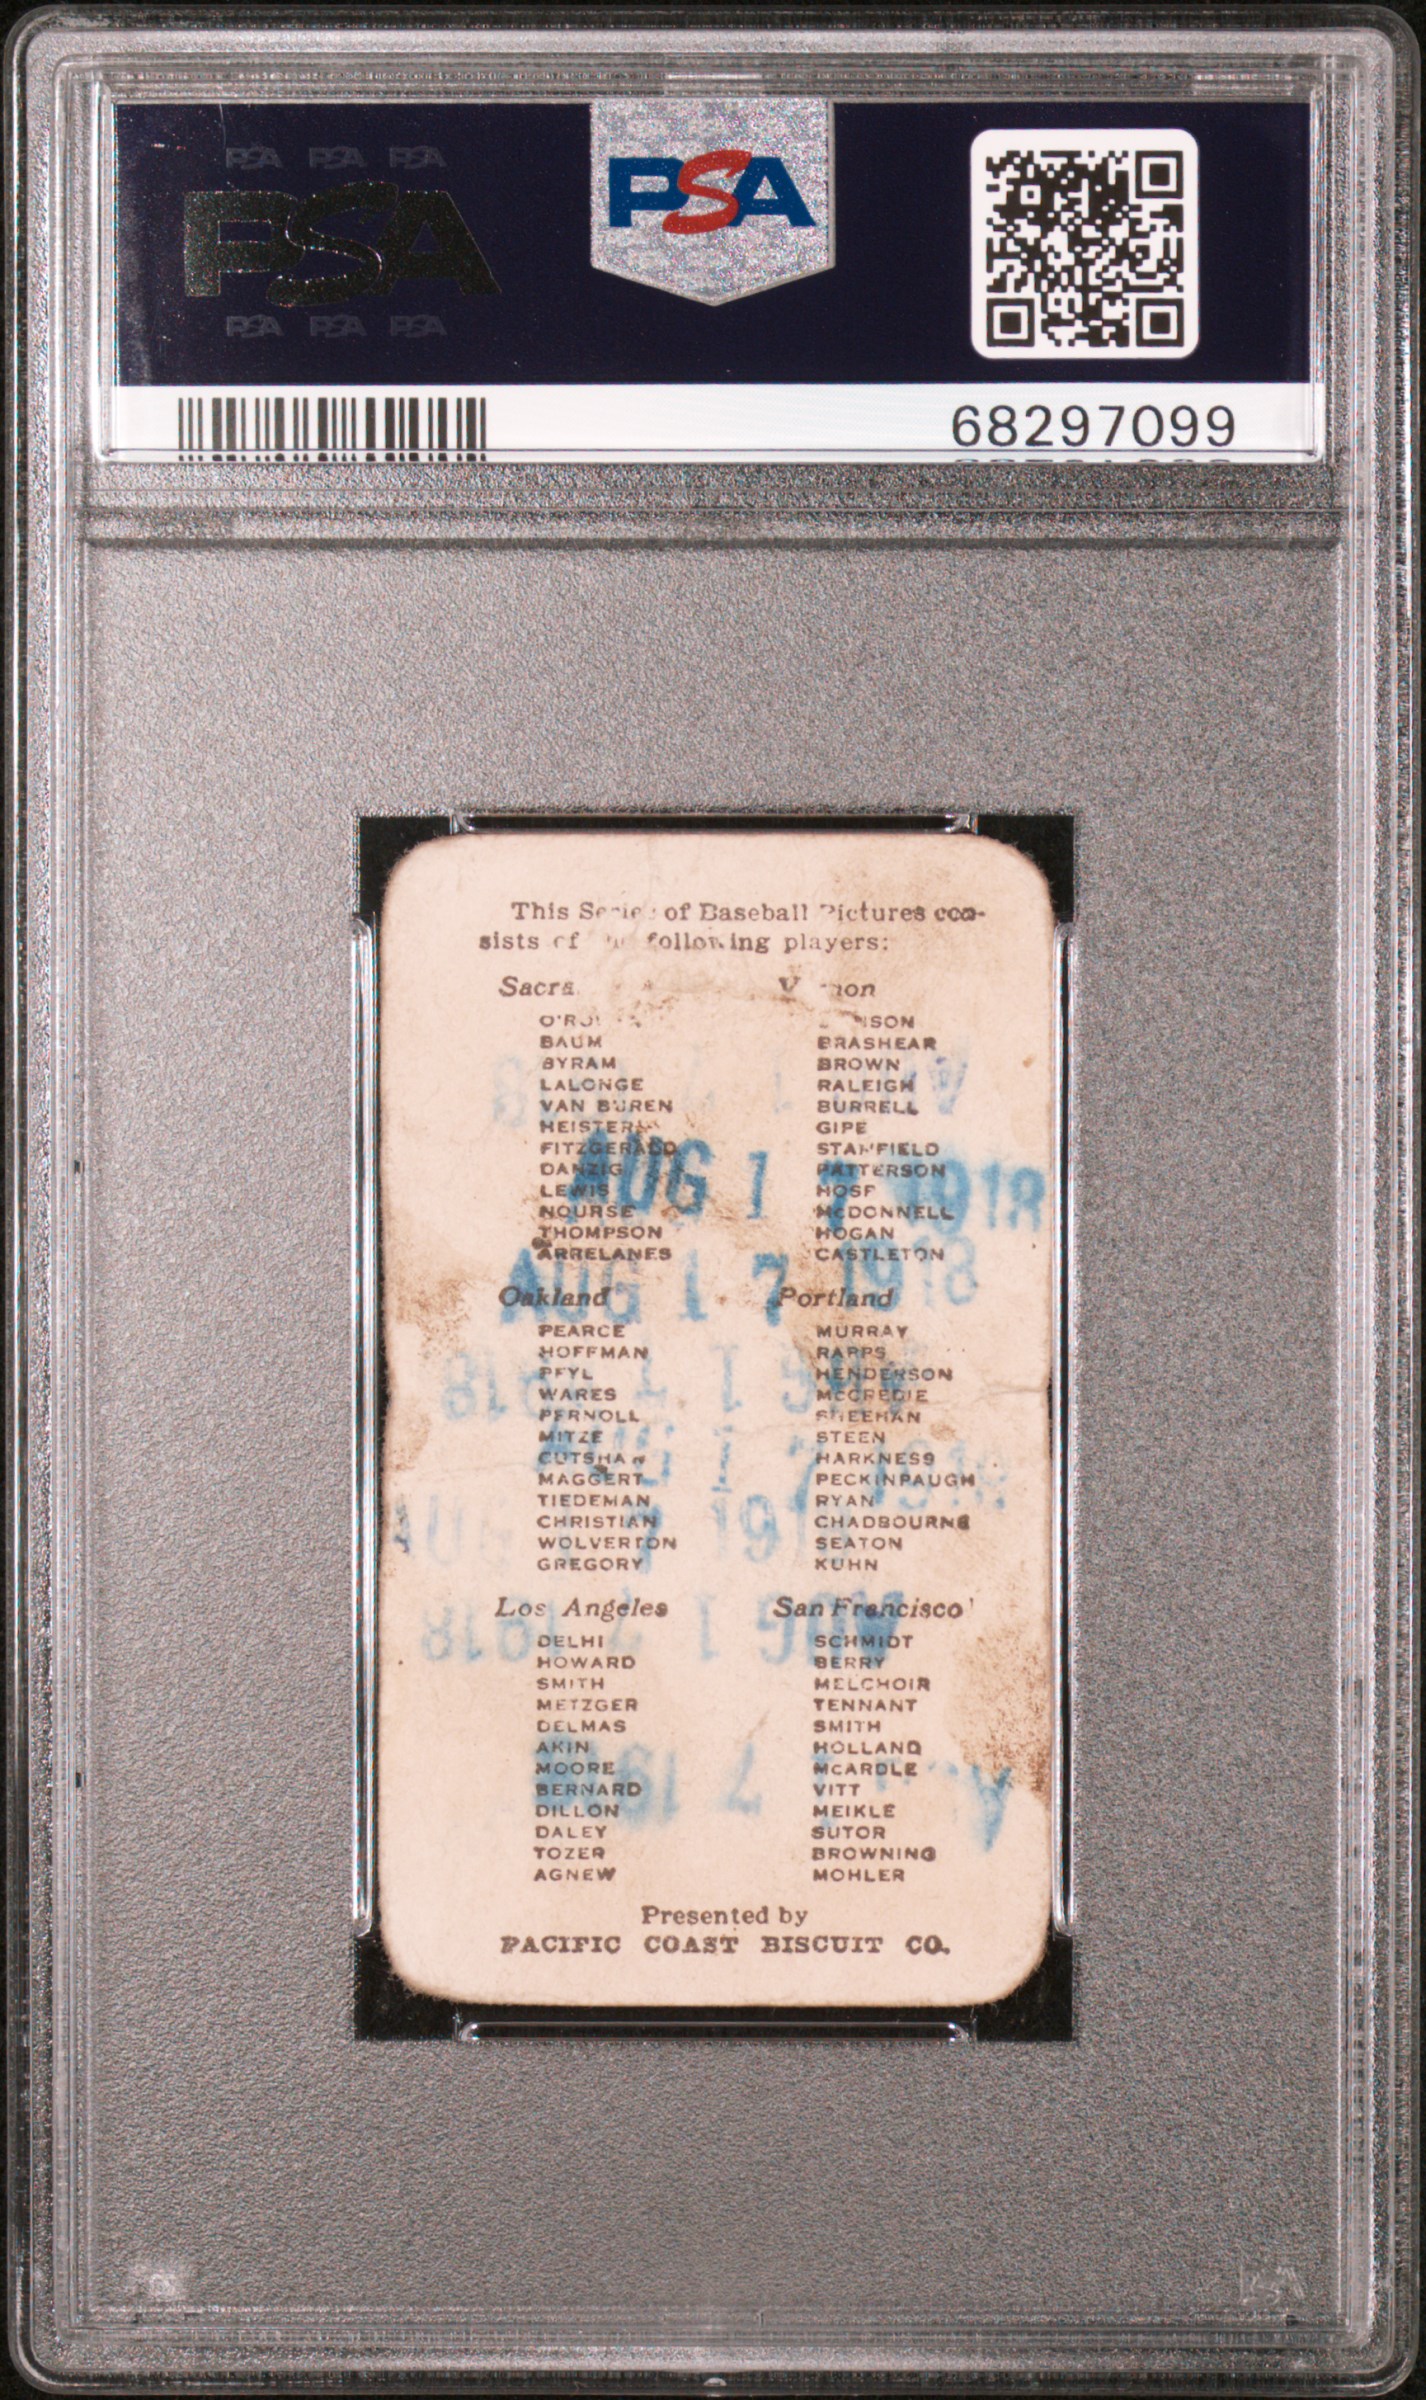 PSA PSA PSA
PSA
PSA PSA PSA
PSA
68297099
This of Baseball Pictures con-
sists of following players:
BAUM
BYRAM
LALONGE
VAN BUREN
FITZGERALD
DANZIG
LEWIS
NOURSE
THOMPSON
ARRELANES
BRASHEAR
BROWN
RALEIGH
BURRELL
GIPE
STANFIELD
PATTERSON
HOSP
McDONNELL
HOGAN
CASTLETON
AUG 1 1918
AUG 1 7 1918
Oakland
PEARCE
HOFFMAN
PFYL
WARES
PERNOLL
MITZE
CUTSHAW
MAGGERT
TIEDEMAN
CHRISTIAN
WOLVERTON
GREGORY
Portland
MURRAY
RAPPS
HENDERSON
McCREDIE
SHEEHAN
STEEN
HARKNESS
PECKINPAUGH
RYAN
CHADBOURNE
SEATON
KUHN
Los Angeles
DELHI
HOWARD
SMITH
METZGER
DELMAS
AKIN
MOORE
BERNARD
DILLON
DALEY
TOZER
AGNEW
San Francisco
SCHMIDT
BERRY
MELCHOIR
TENNANT
SMITH
HOLLAND
McARDLE
VITT
MEIKLE
SUTOR
BROWNING
MOHLER
Presented by
PACIFIC COAST BISCUIT CO.